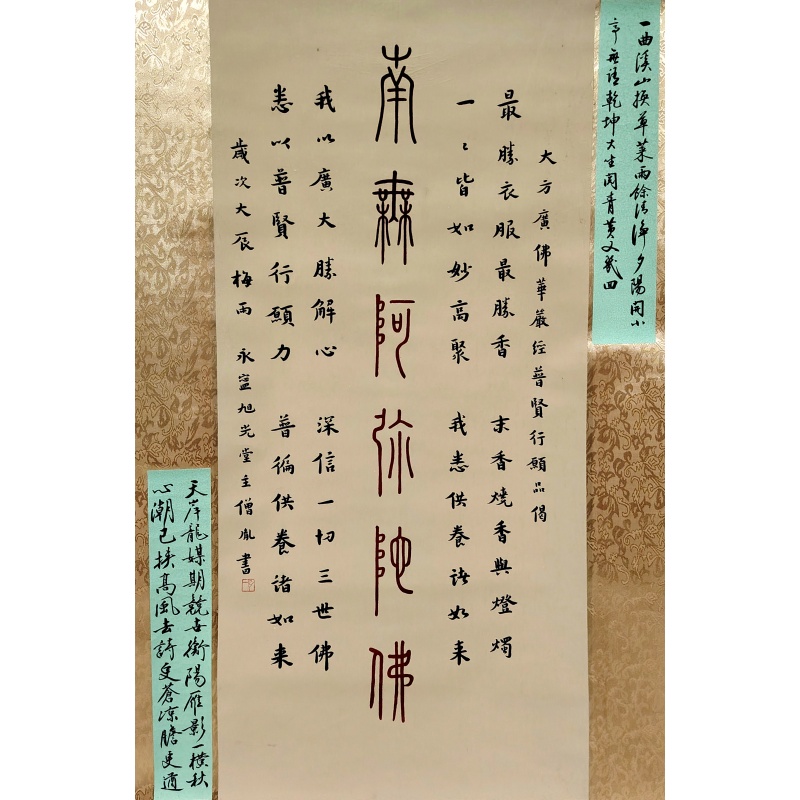 一曲溪山換草萊雨餘清淨夕陽開小
亭無語乾坤大坐閱青黃又幾回
大方廣佛華嚴經普賢行願品偈
最勝衣服最勝香 末香燒香與燈燭
一々皆如妙高聚 我悉供養諸如来
南無阿弥陀佛
我以廣大勝解心 深信一切三世佛
悉以普賢行願力 普徧供養諸如来
歲次大辰梅雨 永寧旭光堂主僧胤書
天岸龍媒期競衡陽雁影一橫秋
心潮已挾高風去詩更蒼涼膽更遒